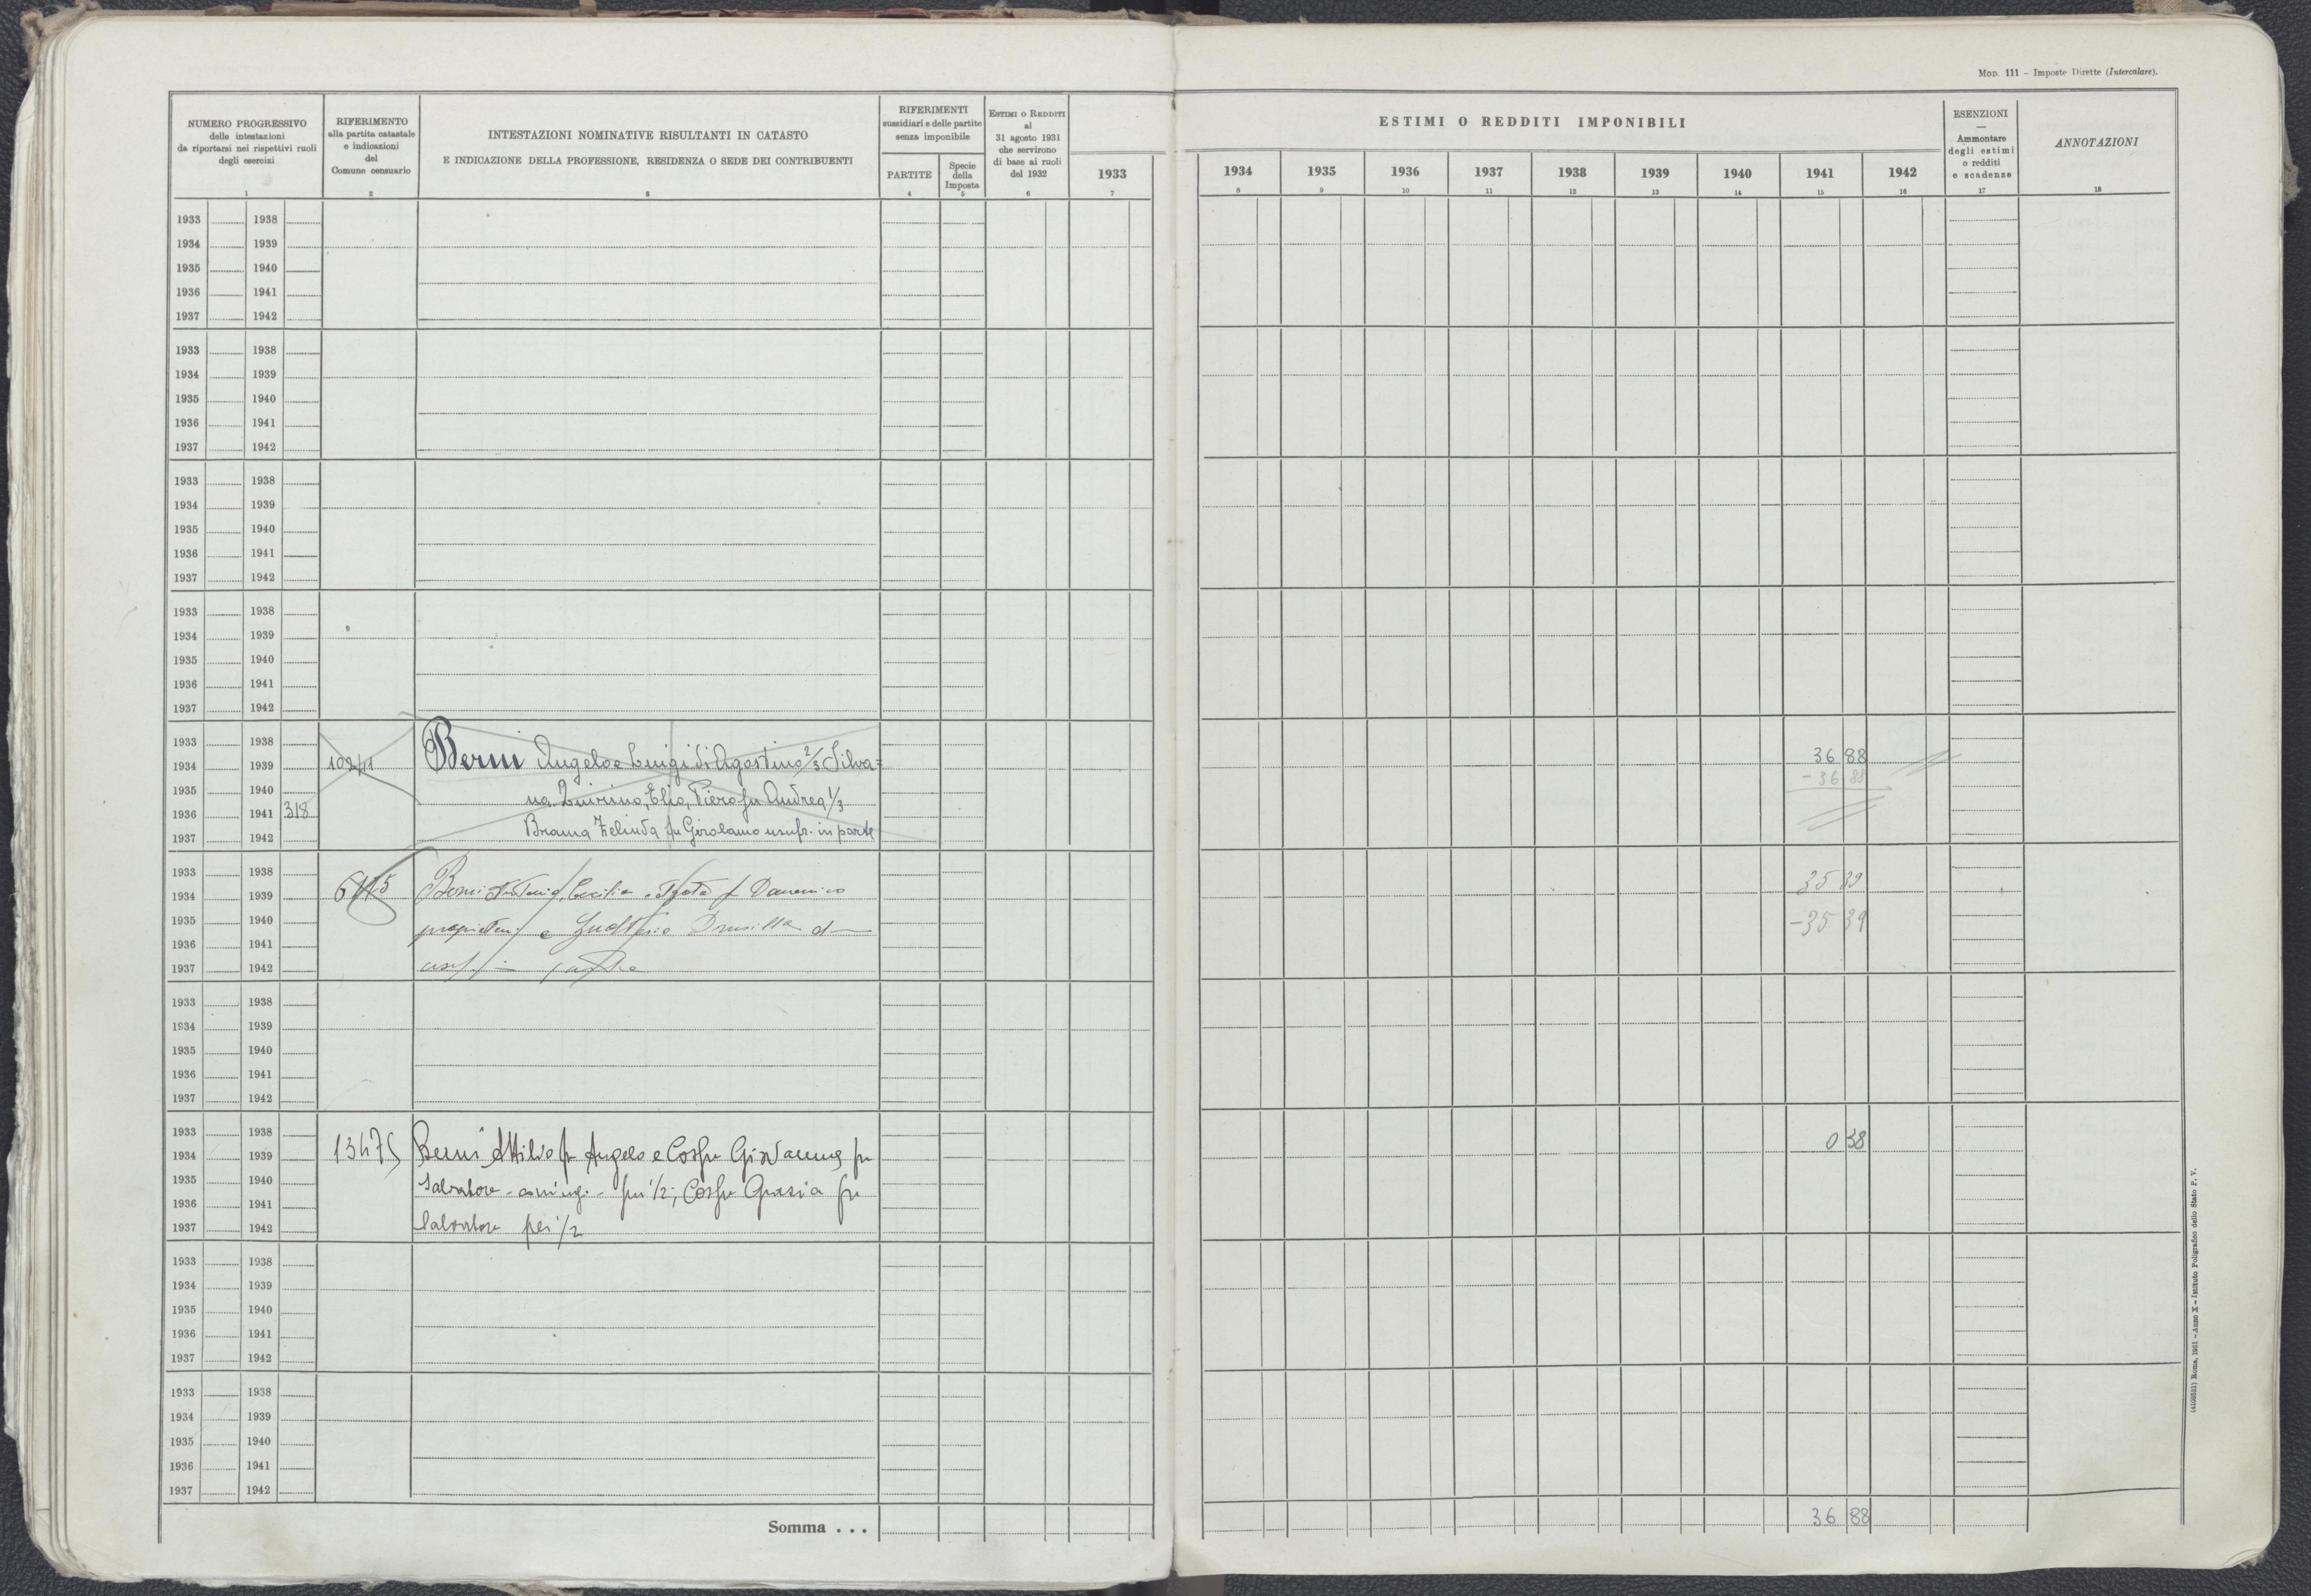 MOD. 111 - Imposte Dirette (Intercalare).
NUMERO PROGRESSIVO
delle intestazioni
da riportarsi nei rispettivi ruoli
degli esercizi
1
RIFERIMENTO
alla partita catastale
e indicazioni
del
Comune censuario
2
INTESTAZIONI NOMINATIVE RISULTANTI IN CATASTO
E INDICAZIONE DELLA PROFESSIONE, RESIDENZA O SEDE DEI CONTRIBUENTI
3
RIFERIMENTI
sussidiari e delle partite
senza imponibile
PARTITE
4
Specie
della
Imposta
5
ESTIMI O REDDITI
al
31 agosto 1931
che servirono
di base ai ruoli
del 1932
6
1933
7
ESTIMI O REDDITI IMPONIBILI
1934 1935 1936 1937 1938 1939 1940 1941 1942
8 9 10 11 12 13 14 15 16
ESENZIONI
—
Ammontare
degli estimi
o redditi
e scadenze
17
ANNOTAZIONI
18
1933 1938
1934 1939
1935 1940
1936 1941
1937 1942
1933 1938
1934 1939
1935 1940
1936 1941
1937 1942
1933 1938
1934 1939
1935 1940
1936 1941
1937 1942
1933 1938
1934 1939
1935 1940
1936 1941
1937 1942
1933 1938
1934 1939 10241 Berni Angelo e Luigi di Agostino 2/3 Silva= 36 88
1935 1940 na Quirino, Elio, Piero fu Andrea 1/3 - 36 88
1936 1941 318
1937 1942 Brama Zelinda fu Girolamo usufr. in parte
1933 1938
1934 1939 Berni Antonio, Cecilia e Agata f Domenico 35 39
1935 1940 proprietari e Drusilla -35 39
1936 1941
1937 1942 usuf. in parte
1933 1938
1934 1939
1935 1940
1936 1941
1937 1942
1933 1938
1934 1939 13475 Berni Attilio fu Angelo e Cossu Giovanna fu 0 38
1935 1940 Salvatore - coniugi - per 1/2; Cossu Grazia fu
1936 1941
1937 1942 Salvatore per 1/2
1933 1938
1934 1939
1935 1940
1936 1941
1937 1942
1933 1938
1934 1939
1935 1940
1936 1941
1937 1942
Somma . . . 36 88
(4100531) Roma, 1931 - Anno X - Istituto Poligrafico dello Stato P. V.